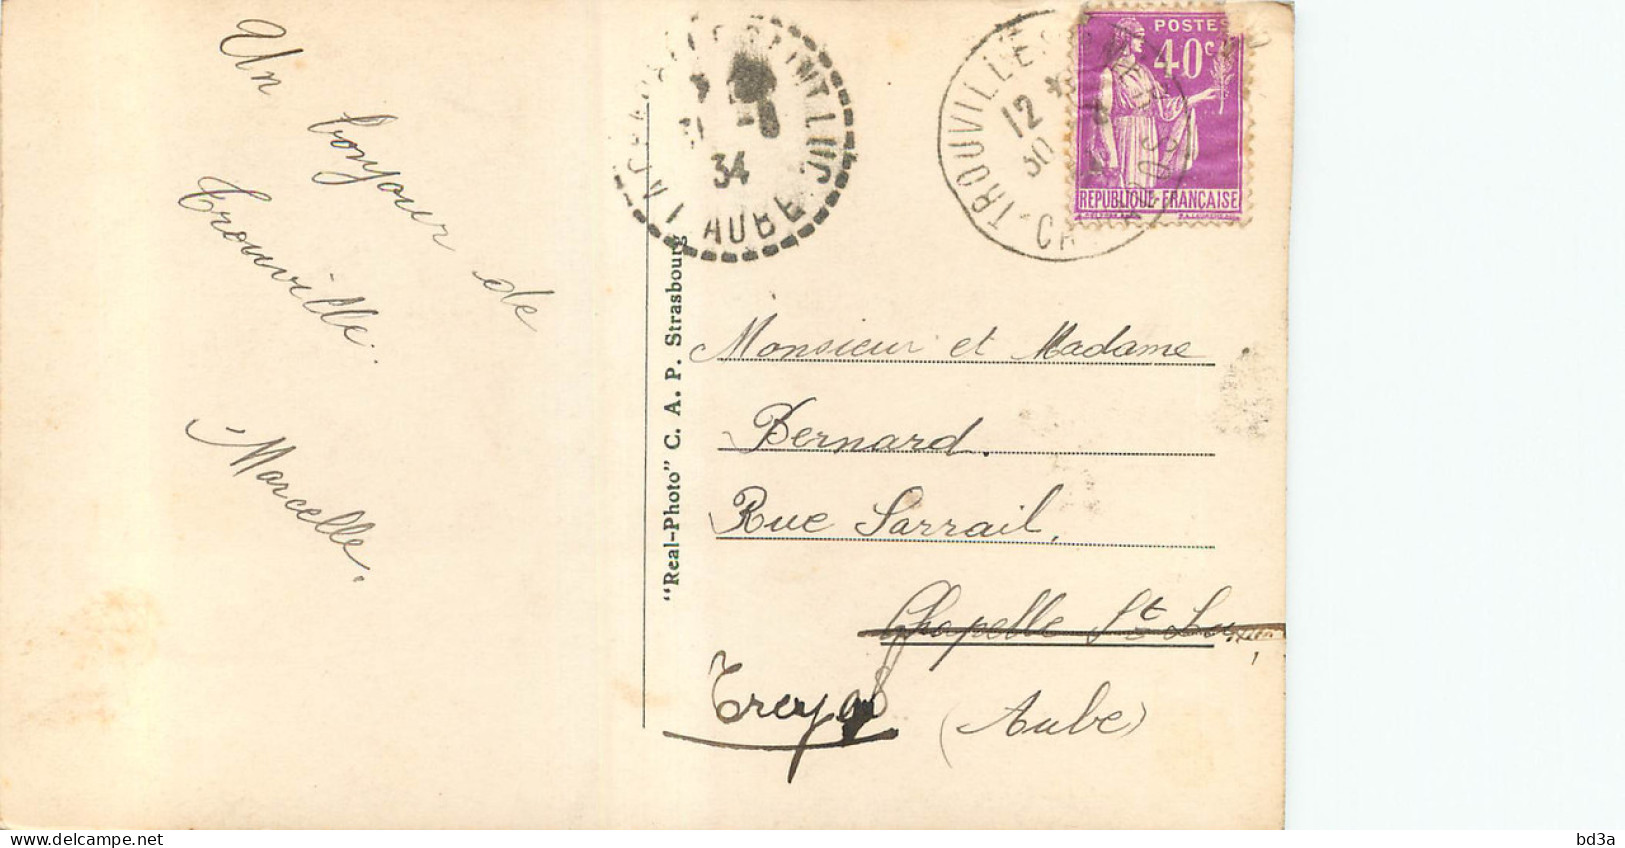 Un
bonjour de
Trouville.
Marcelle.
"Real-Photo" C. A. P. Strasbourg
34
AUBE
TROUVILLE
12
30
POSTES
40c
REPUBLIQUE FRANÇAISE
Monsieur et Madame
Bernard.
Rue Sarrail,
Chapelle St Luc
Troyes
(Aube)
bd3a